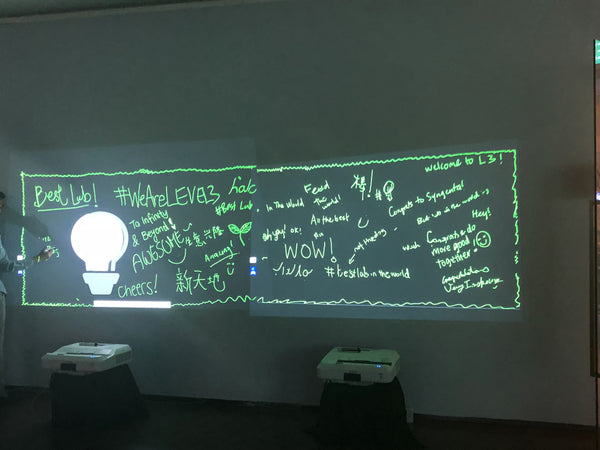 Best Lab!
#WeAreLEVEL3
#Best Lab
To Infinity
& Beyond
AWESOME
生意兴隆
Amazing!
cheers!
新天地
welcome to L3!
Feed
the world!
In The World
棒!
#
All the best
WOW!
#bestlab in the world
Congrats to Syngenta!
But we in the world
Hey!
which
Congrats & do
more good
together!
Congratulations
Very Inspiring